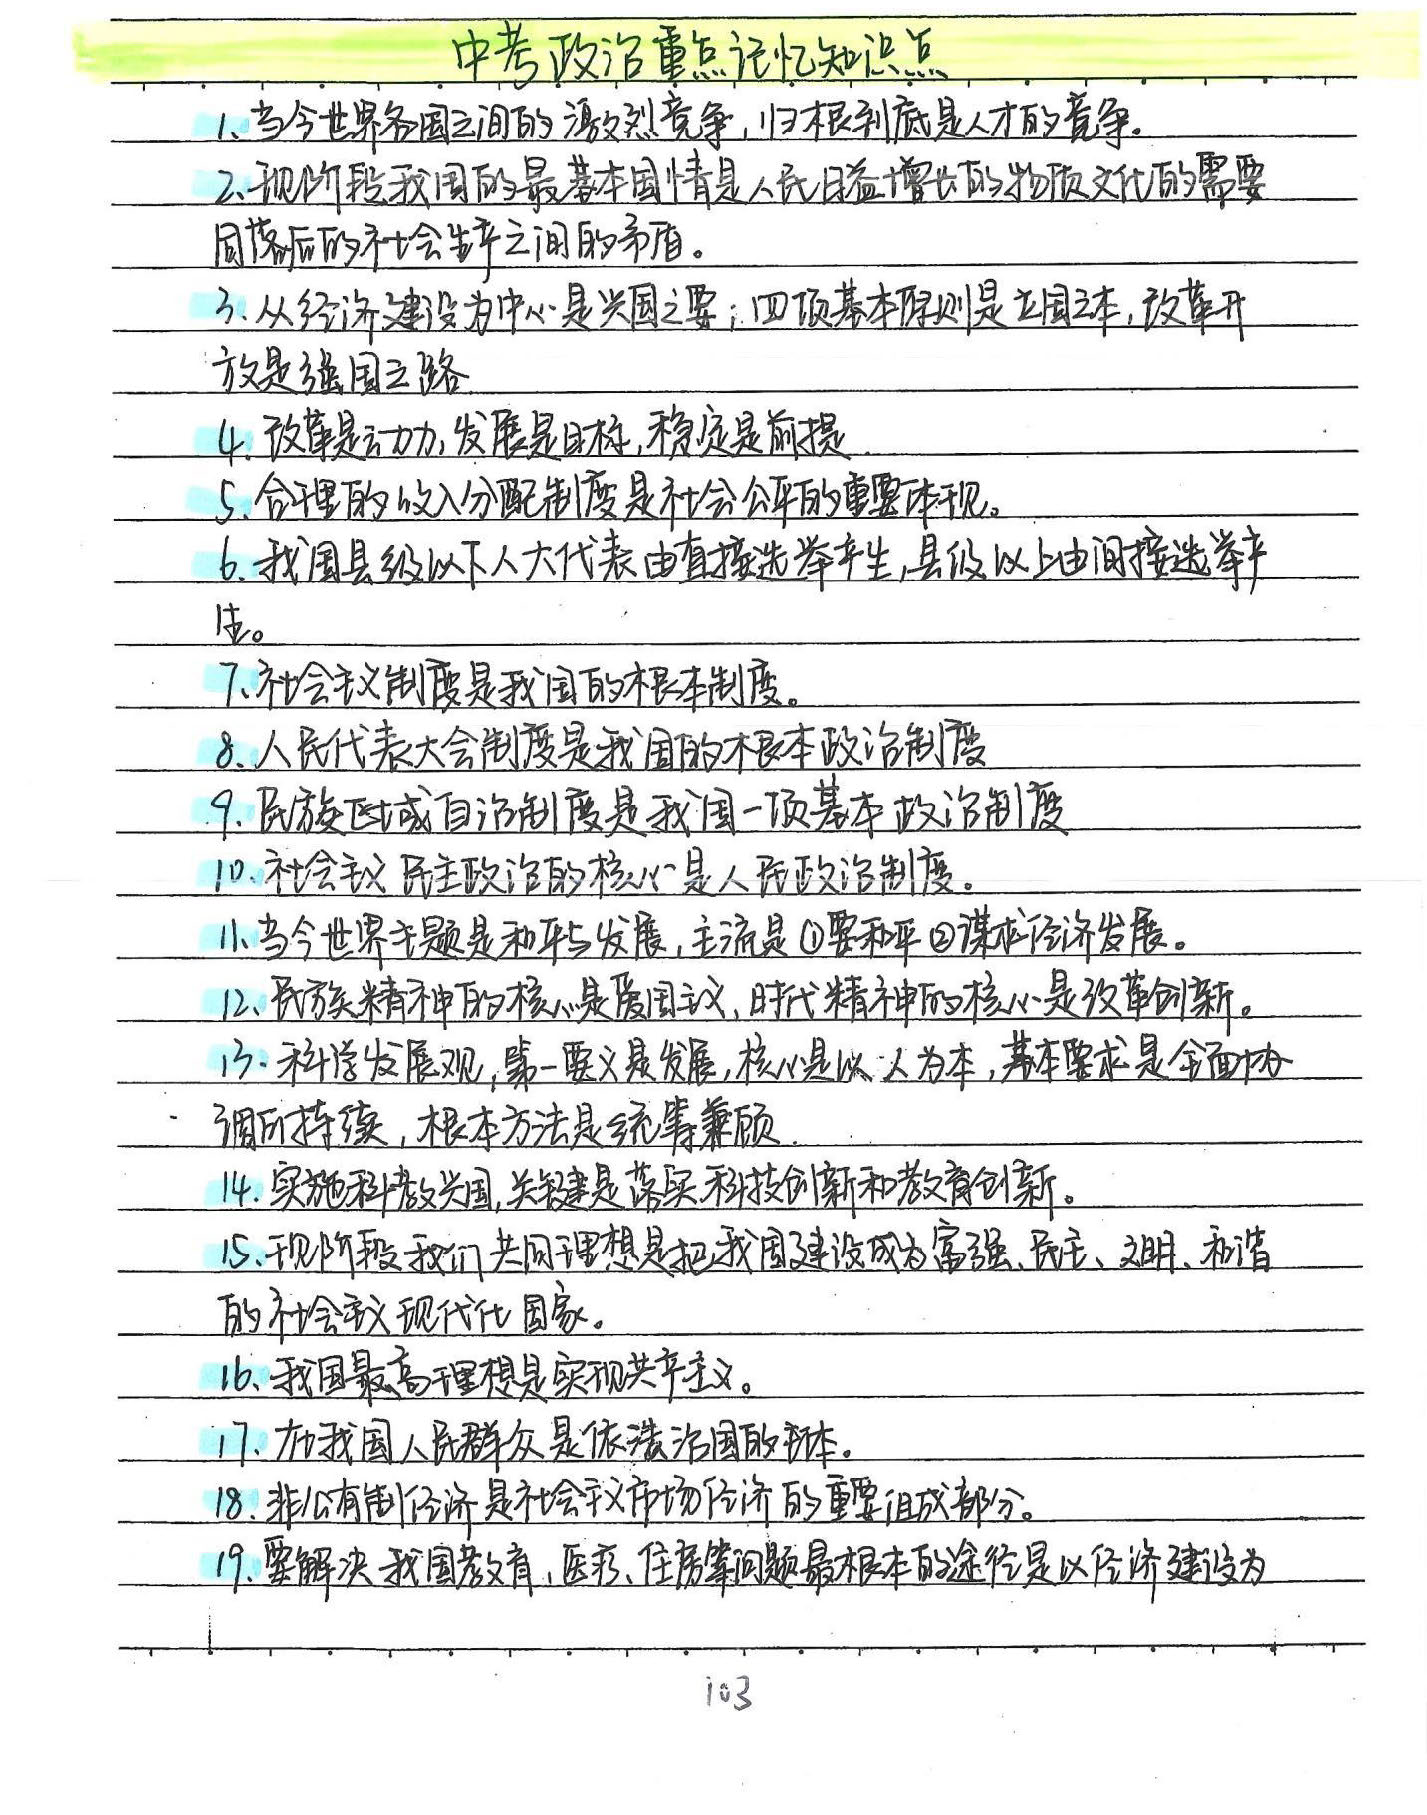 中考政治重点记忆知识点
1、当今世界各国之间的激烈竞争，归根到底是人才的竞争。
2、现阶段我国的最基本国情是人民日益增长的物质文化的需要
同落后的社会生产之间的矛盾。
3、从经济建设为中心是兴国之要；四项基本原则是立国之本，改革开
放是强国之路
4、改革是动力，发展是目标，稳定是前提.
5、合理的收入分配制度是社会公平的重要体现。
6、我国县级以下人大代表由直接选举产生，县级以上由间接选举产
生。
7、社会主义制度是我国的根本制度。
8、人民代表大会制度是我国的根本政治制度
9、民族区域自治制度是我国一项基本政治制度
10、社会主义民主政治的核心是人民政治制度。
11、当今世界主题是和平与发展，主流是①要和平②谋求经济发展。
12、民族精神的核心是爱国主义，时代精神的核心是改革创新。
13、科学发展观，第一要义是发展，核心是以人为本，基本要求是全面协
调可持续，根本方法是统筹兼顾.
14、实施科教兴国，关键是落实科技创新和教育创新。
15、现阶段我们共同理想是把我国建设成为富强、民主、文明、和谐
的社会主义现代化国家。
16、我国最高理想是实现共产主义。
17、在我国人民群众是依法治国的主体。
18、非公有制经济是社会主义市场经济的重要组成部分。
19、要解决我国教育、医疗、住房等问题最根本的途径是以经济建设为
103